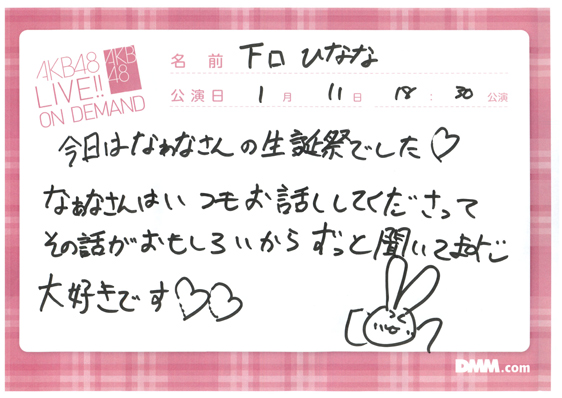 AKB48
LIVE!!
ON DEMAND
AKB
48
名前 下口ひなな
公演日 1月 11日 18:30 公演
今日はなぁなさんの生誕祭でした♡
なぁなさんはいつもお話ししてくださって
その話がおもしろいからずっと聞いてます
大好きです♡♡
DMM.com